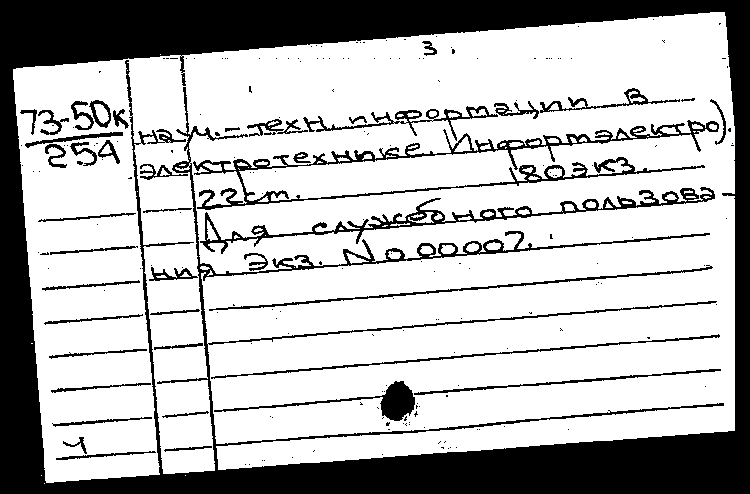 3.
73-50к
254
науч.-техн. информации в
электротехнике. Информэлектро).
22см. 180экз.
Для служебного пользова-
ния. Экз. No 00007.
Ч